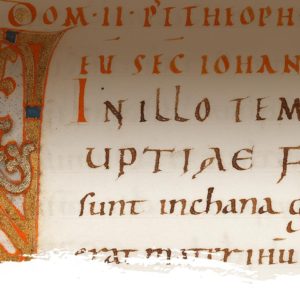 DOM·II·P̅TTHEOPH
EU SEC̅ IOHAN
IN ILLO TEM
UPTIAE F
sunt inchana g
erat mater ihu